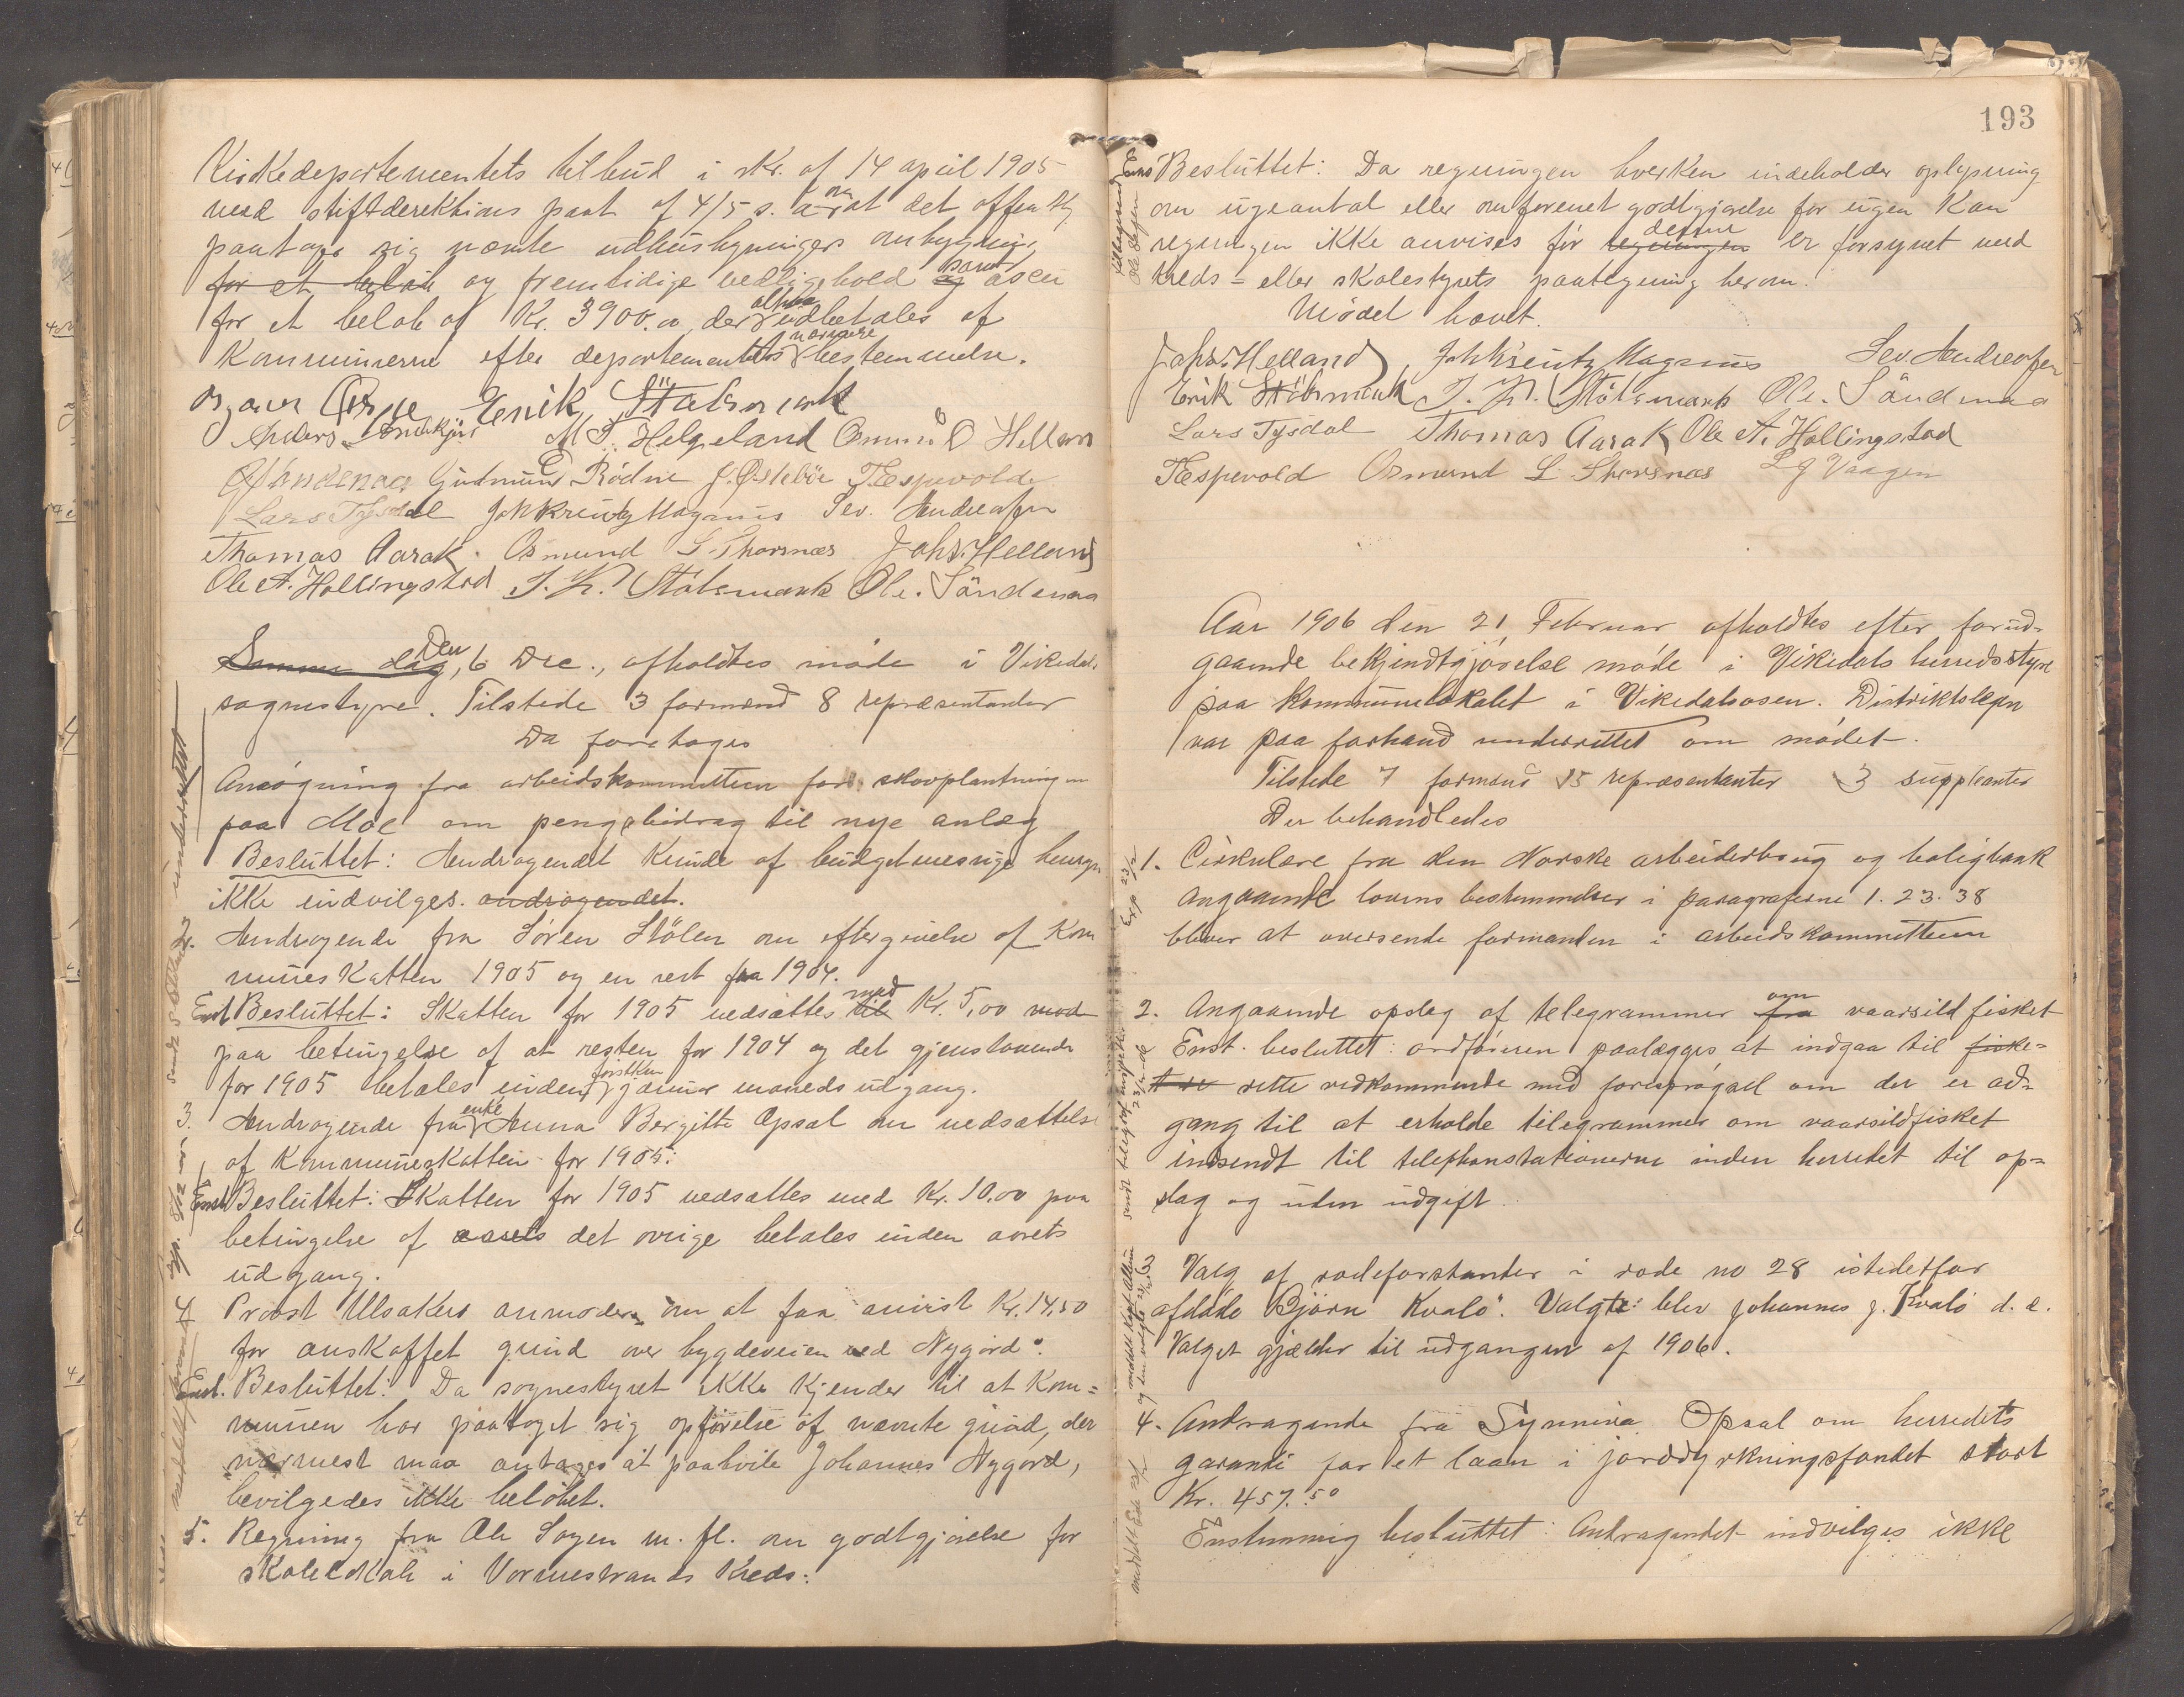 Kirkedepartementets tilbud i skr. af 14 april 1905
med stiftderektions paat af 4/5 s. a. at det offentl.
paatage sig nævnte udhusbygningers ombygning
for et beløb og fremtidige vedligehold samt
for et beløb af Kr. 3900.00, der udbetales af
Kommunerne efter departementets nærmere bestemmelse.
Erik Stølsmark
Anders M. T. Helgeland Osmund Hellan
Gudmund Rødne J. Østebø T. Espevold
Lars Tysdal Joh Kreutz Magnus Sev. Andreasen
Thomas Aarak. Osmund L. Thorsnæs Johs. Helland
Ole A. Hallingstad J. K. Stølsmark Ole. Søndenaa
Samme dag, Den 6 Dec., afholdtes møde i Vikedals
sognestyre. Tilstede 3 formænd 8 repræsentanter
Da foretoges
Ansøgning fra arbeidskommitteen for skovplantningen
paa Moe om pengebidrag til nye anlæg
Besluttet: Andragendet kunde af budgetmæssige hensyn
ikke indvilges. andragendet.
2. Andragende fra Søren Stølen om eftergivelse af Kom
muneskatten 1905 og en rest fra 1904.
Enst Besluttet: Skatten for 1905 nedsættes til med Kr. 5,00 mod
paa betingelse af at resten for 1904 og det gjenstaaende
for 1905 betales inden førstken. januar maaneds udgang.
3. Andragende fra enke Anna Bergitte Opsal om nedsættelse
af Kommuneskatten for 1905:
Enst Besluttet: Skatten for 1905 nedsættes med Kr. 10.00 paa
betingelse af det øvrige betales inden aarets
udgang.
4 Provst Ulsakers anmoder om at faa anvist Kr. 14,50
for anskaffet grind over bygdeveien ved Nygård".
Enst. Besluttet: Da sognestyret ikke kjender til at Kom=
munen har paataget sig opførelse af nævnte grind, der
nærmest maa antages at paahvile Johannes Nygård,
bevilgedes ikke beløbet.
5. Regning fra Ole Søgen m. fl. om godtgjørelse for
skolelokale i Vormestrands Kreds:
193
Enst Besluttet: Da regningen hverken indeholder oplysning
om ugeantal eller omforenet godtgjørelse for ugen kan
regningen ikke anvises før regningen denne er forsynet med
kreds- eller skolestyrets paategning herom.
Mødet hævet.
Johs. Helland, Joh Kreutz Magnus Sev. Andreasen
Erik Stølsmark J. K. Stølsmark Ole. Søndenaa
Lars Tysdal Thomas Aarak Ole A. Hallingstad
T Espevold Osmund L. Thorsnæs L G Vaagen
Aar 1906 den 21 Februar afholdtes efter forud=
gaaende bekjendtgjørelse møde i Vikedals herredsstyre
paa Kommunelokalet i Vikedalsosen. Distriktslægen
var paa forhand underrettet om mødet.
Tilstede 7 formænd 15 repræsentanter 3 suppleanter
Der behandledes
1. Cirkulære fra den Norske arbeiderbrug og boligbank
angaaende lovens bestemmelser i paragraferne 1. 23. 38
bliver at oversende formanden i arbeidskommitteen
2. Angaaende opslag af telegrammer fra om vaarsildfisket
Enst. besluttet: ordføreren paalægges at indgaa til fiske=
rette vedkommende med forespørgsel om der er ad=
gang til at erholde telegrammer om vaarsildfisket
indsendt til telephonstationerne inden herredet til op=
slag og uden udgift.
Valg af rodeforstander i rode no 28 istedetfor
afdøde Bjørn Kvalø". Valgt: blev Johannes J. Kvalø d. e.
Valget gjælder til udgangen af 1906.
4. Andragende fra Synniva Opsal om herredets
garanti for et laan i jorddyrkningsfondet stort
Kr. 457.50
Enstemmig besluttet: Andragendet indvilges ikke